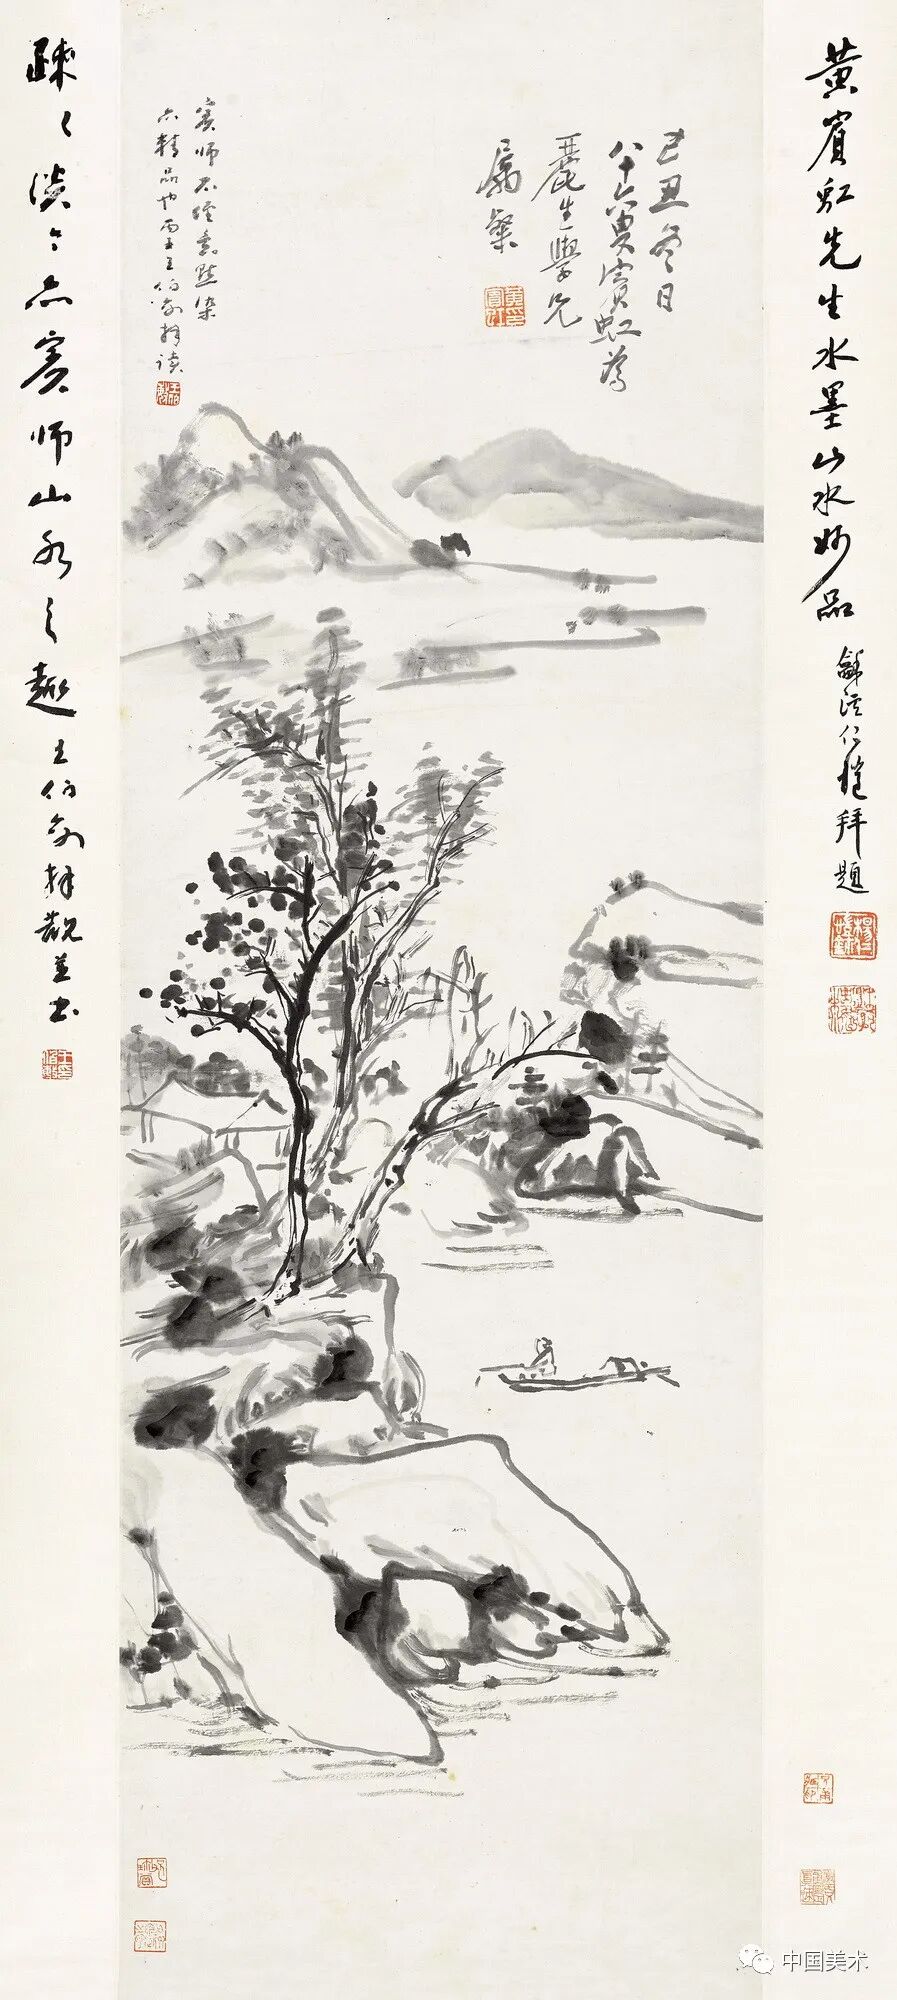 黄賓虹先生水墨山水妙品
龢溪仁愷拜題
己丑冬日
八十六叟賓虹為
麗生學兄
屬粲
賓師不經意點染
亦精品也
王伯敏拜讀
疎疎淡淡亦賓師山水之趣
王伯敏拜觀並書
中国美术